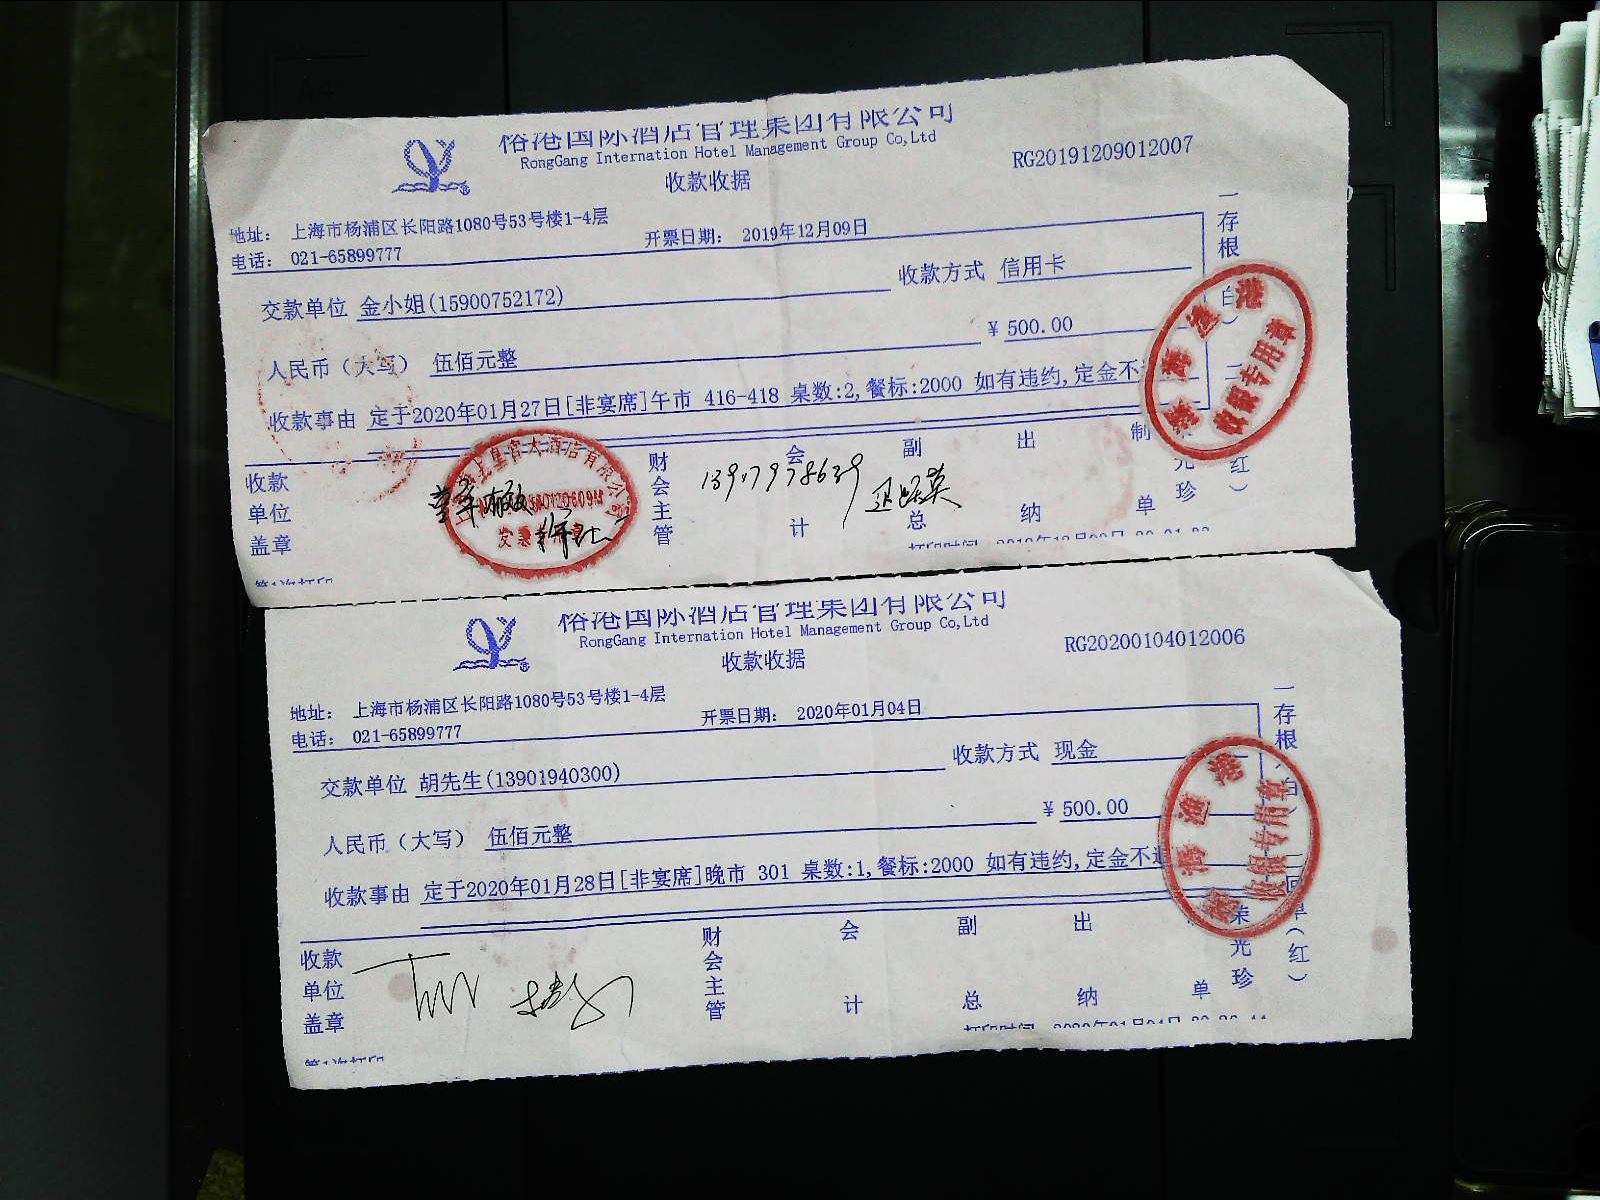 俗港国际酒店管理集团有限公司
RongGang Internation Hotel Management Group Co,Ltd
RG20191209012007
收款收据
地址： 上海市杨浦区长阳路1080号53号楼1-4层
电话： 021-65899777
开票日期： 2019年12月09日
收款方式 信用卡
交款单位 金小姐(15900752172)
¥ 500.00
人民币（大写） 伍佰元整
收款事由 定于2020年01月27日[非宴席]午市 416-418 桌数:2,餐标:2000 如有违约,定金不
收款单位盖章
财会主管
会计
副总
出纳
制单
光珍
一存根
白
红
收银专用章
13917978639
第1次打印
打印时间
俗港国际酒店管理集团有限公司
RongGang Internation Hotel Management Group Co,Ltd
RG20200104012006
收款收据
地址： 上海市杨浦区长阳路1080号53号楼1-4层
电话： 021-65899777
开票日期： 2020年01月04日
收款方式 现金
交款单位 胡先生(13901940300)
¥ 500.00
人民币（大写） 伍佰元整
收款事由 定于2020年01月28日[非宴席]晚市 301 桌数:1,餐标:2000 如有违约,定金不退
收款单位盖章
财会主管
会计
副总
出纳
单
荣光珍
一存根
单(红)
第1次打印
打印时间